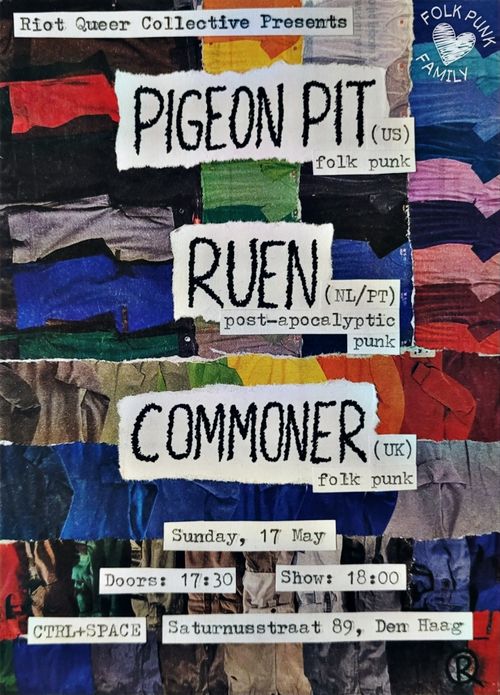 Riot Queer Collective Presents
FOLK PUNK
FAMILY
PIGEON PIT (US)
folk punk
RUEN (NL/PT)
post-apocalyptic
punk
COMMONER (UK)
folk punk
Sunday, 17 May
Doors: 17:30 Show: 18:00
CTRL+SPACE Saturnusstraat 89, Den Haag
R